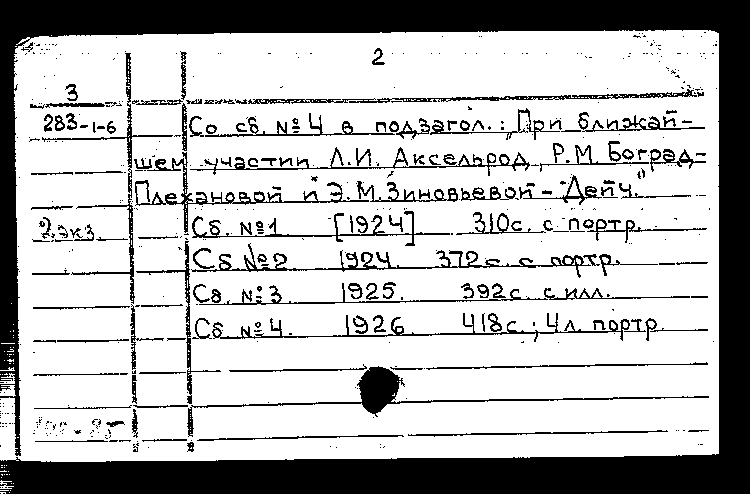 2
3
283-1-6 Со сб. №4 в подзагол.: „При ближай-
шем участии Л.И. Аксельрод, Р.М. Боград-
Плехановой и Э.М. Зиновьевой - Дейч."
2 экз. Сб. №1 [1924] 310с. с портр.
Сб №2 1924. 372с. с портр.
Сб. №3 1925. 392с. с илл.
Сб №4. 1926 418с.; 4л. портр.